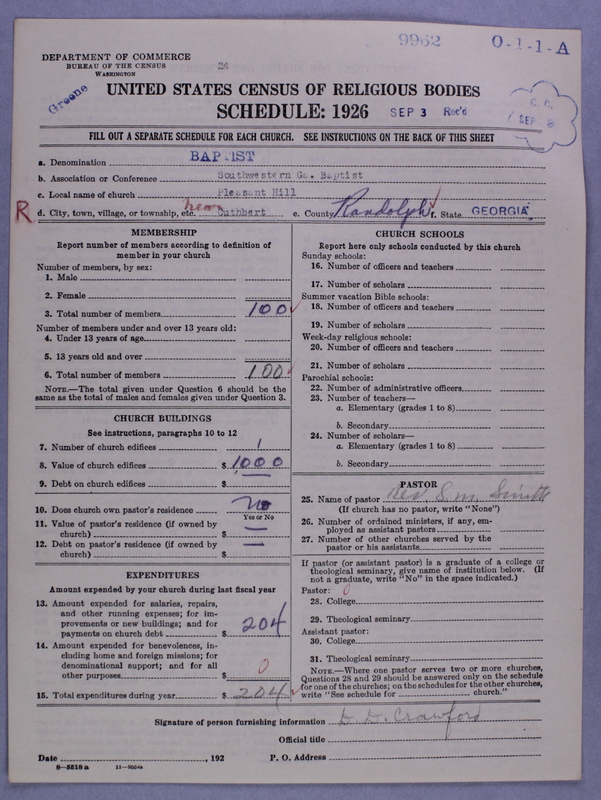 9962 O-1-1-A
DEPARTMENT OF COMMERCE
BUREAU OF THE CENSUS
WASHINGTON
24
Greene
UNITED STATES CENSUS OF RELIGIOUS BODIES
SCHEDULE: 1926
SEP 3 Rec'd
C. C.
SEP 8
FILL OUT A SEPARATE SCHEDULE FOR EACH CHURCH. SEE INSTRUCTIONS ON THE BACK OF THIS SHEET
a. Denomination BAPTIST
b. Association or Conference Southwestern Ga. Baptist
c. Local name of church Pleasant Hill
R d. City, town, village, or township, etc. near Cuthbert e. County Randolph f. State GEORGIA
MEMBERSHIP
Report number of members according to definition of
member in your church
Number of members, by sex:
1. Male
2. Female
3. Total number of members 100
Number of members under and over 13 years old:
4. Under 13 years of age
5. 13 years old and over
6. Total number of members 100
NOTE.—The total given under Question 6 should be the
same as the total of males and females given under Question 3.
CHURCH BUILDINGS
See instructions, paragraphs 10 to 12
7. Number of church edifices 1
8. Value of church edifices $ 1000
9. Debt on church edifices $ —
10. Does church own pastor's residence No
Yes or No
11. Value of pastor's residence (if owned by
church) $ —
12. Debt on pastor's residence (if owned by
church) $ —
EXPENDITURES
Amount expended by your church during last fiscal year
13. Amount expended for salaries, repairs,
and other running expenses; for im-
provements or new buildings; and for
payments on church debt $ 204
14. Amount expended for benevolences, in-
cluding home and foreign missions; for
denominational support; and for all
other purposes $ 0
15. Total expenditures during year $ 204
CHURCH SCHOOLS
Report here only schools conducted by this church
Sunday schools:
16. Number of officers and teachers
17. Number of scholars
Summer vacation Bible schools:
18. Number of officers and teachers
19. Number of scholars
Week-day religious schools:
20. Number of officers and teachers
21. Number of scholars
Parochial schools:
22. Number of administrative officers
23. Number of teachers—
a. Elementary (grades 1 to 8)
b. Secondary
24. Number of scholars—
a. Elementary (grades 1 to 8)
b. Secondary
PASTOR
25. Name of pastor Rev S. M. Smith
(If church has no pastor, write "None")
26. Number of ordained ministers, if any, em-
ployed as assistant pastors
27. Number of other churches served by the
pastor or his assistants
If pastor (or assistant pastor) is a graduate of a college or
theological seminary, give name of institution below. (If
not a graduate, write "No" in the space indicated.)
Pastor: 0
28. College
29. Theological seminary
Assistant pastor:
30. College
31. Theological seminary
NOTE.—Where one pastor serves two or more churches,
Questions 28 and 29 should be answered only on the schedule
for one of the churches; on the schedules for the other churches,
write "See schedule for church."
Signature of person furnishing information D. D. Crawford
Official title
Date , 192 P. O. Address
8—5518 a 11—9064a